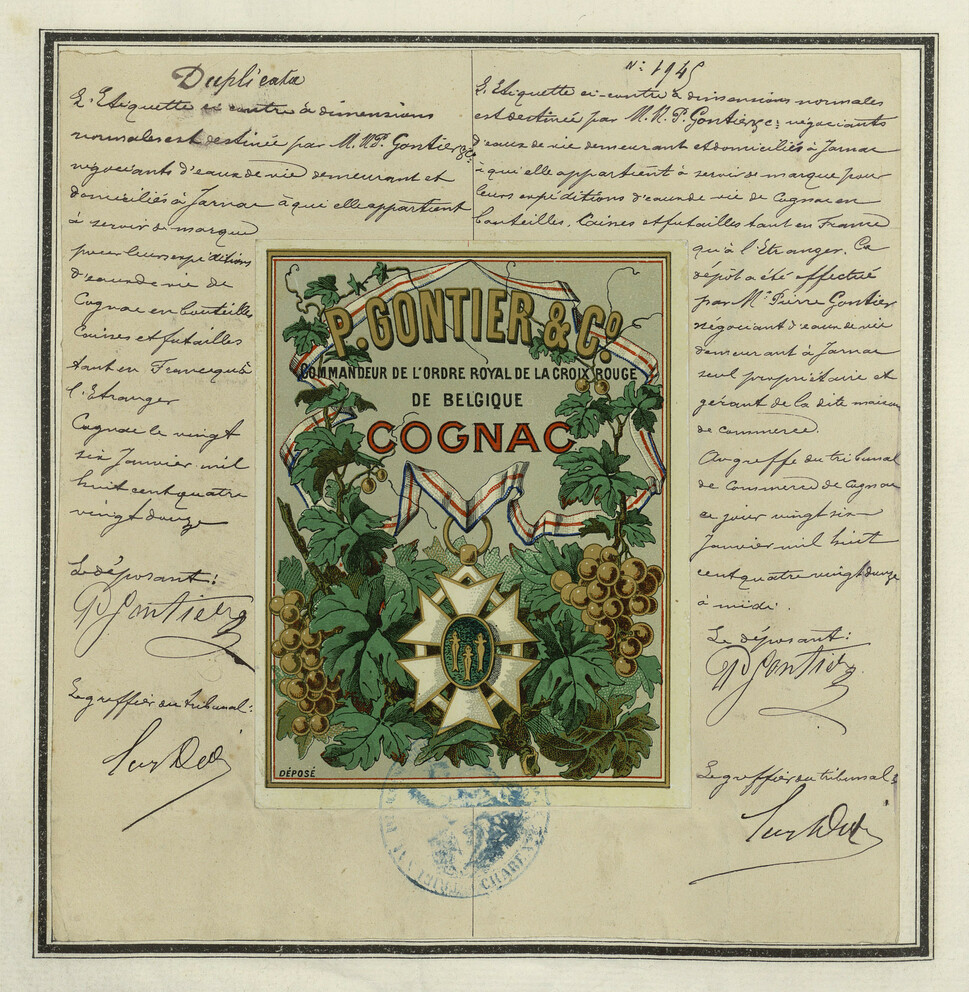 Duplicata
L'Etiquette ci-contre à dimensions
normales est destinée par M. P. Gontier & Ce
négociants d'eaux de vie demeurant et
domiciliés à Jarnac à qui elle appartient
à servir de marque
pour leurs expéditions
d'eaux de vie de
Cognac en bouteilles
Caisses et futailles
tant en France qu'à
l'Etranger
Cognac le vingt
six Janvier mil
huit cent quatre
vingt douze
Le déposant:
P. Gontier
Le greffier du tribunal:
No: 1945
L'Etiquette ci-contre à dimensions normales
est destinée par M. P. Gontier & Ce négociants
d'eaux de vie demeurant et domiciliés à Jarnac
à qui elle appartient à servir de marque pour
leurs expéditions d'eaux de vie de Cognac en
bouteilles, Caisses et futailles tant en France
qu'à l'Etranger. Ce
dépot a été effectué
par Mr Pierre Gontier
négociant d'eaux de vie
demeurant à Jarnac
seul propriétaire et
gérant de la dite maison
de commerce.
Au greffe du tribunal
de Commerce de Cognac
ce jour vingt six
Janvier mil huit
cent quatre vingt douze
à midi.
Le déposant:
P. Gontier
Le greffier du tribunal:
P. GONTIER & Co.
COMMANDEUR DE L'ORDRE ROYAL DE LA CROIX ROUGE
DE BELGIQUE
COGNAC
DÉPOSÉ
CHARENTE